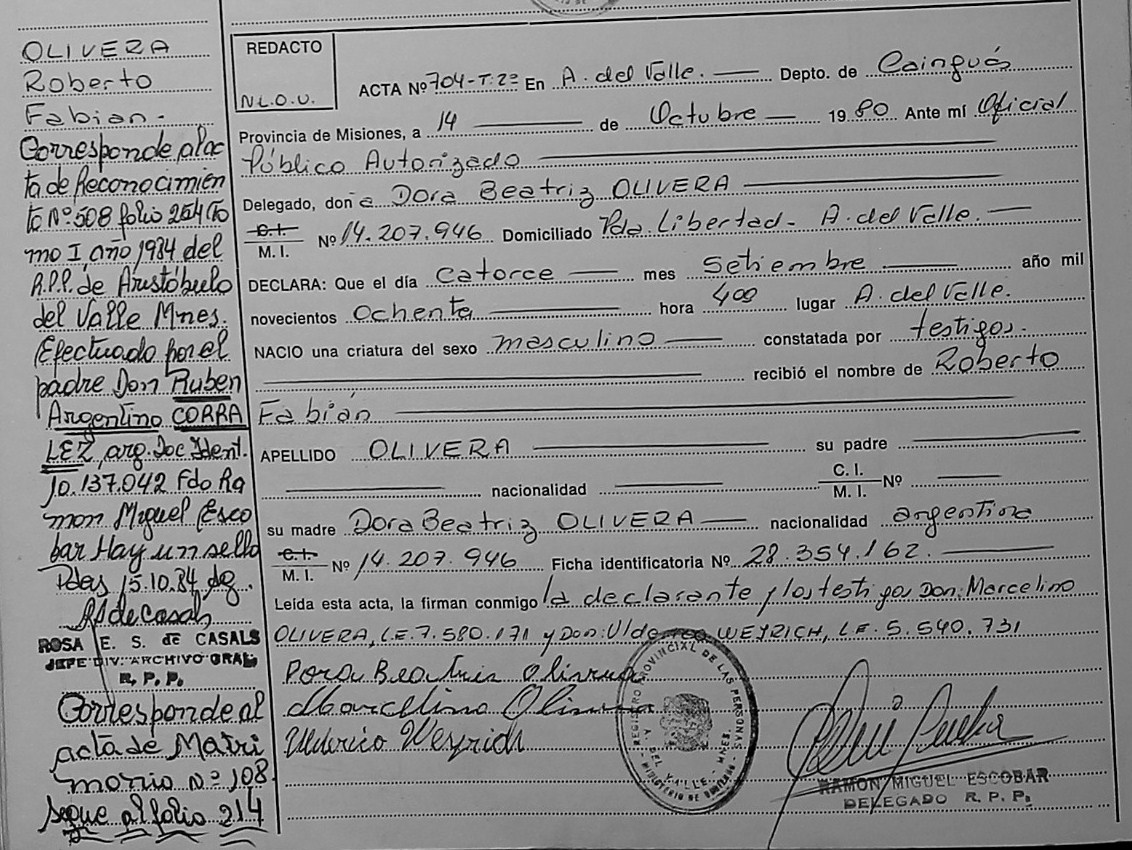 OLIVERA
Roberto
Fabian.-
Corresponde al ac
ta de Reconocimien
to Nº 508 folio 254 To
mo I, año 1984 del
R.P.P. de Aristóbulo
del Valle Mnes.
Efectuado por el
padre Don Ruben
Argentino CORRA
LEZ, arg. Doc Ident.
10.137.042 Fdo Ra
mon Miguel Esco
bar Hay un sello
Pdas, 15.10.84 dg.
RSdeCasals
ROSA E. S. de CASALS
JEFE DIV. ARCHIVO GRAL
R. P. P.
Corresponde al
acta de Matri
monio Nº 108
sigue al folio 214
REDACTO
N.L.O.U.
ACTA Nº 704-T:2º En A. del Valle. Depto. de Cainguás
Provincia de Misiones, a 14 de Octubre 1980 Ante mí Oficial
Público Autorizado
Delegado, don a Dora Beatriz OLIVERA
C.I. M.I. Nº 14.207.946 Domiciliado Pda. Libertad- A. del Valle.
DECLARA: Que el día catorce mes setiembre año mil
novecientos ochenta hora 400 lugar A. del Valle.
NACIO una criatura del sexo masculino constatada por testigos.
recibió el nombre de Roberto
Fabián
APELLIDO OLIVERA su padre
nacionalidad C. I. M. I. Nº
su madre Dora Beatriz OLIVERA nacionalidad argentina
C.I. M.I. Nº 14.207.946 Ficha identificatoria Nº 28.354.162.
Leída esta acta, la firman conmigo la declarante y los testigos Don: Marcelino
OLIVERA, L.E. 7.580.171 y Don: WEYRICH, L.E. 5.540.731
Dora Beatris Olivera
Marcelino Olivera
Ulderico Weyrich
REGISTRO PROVINCIAL DE LAS PERSONAS
DEL VALLE - MNES.
MINISTERIO DE GOBIERNO
RAMON MIGUEL ESCOBAR
DELEGADO R. P. P.